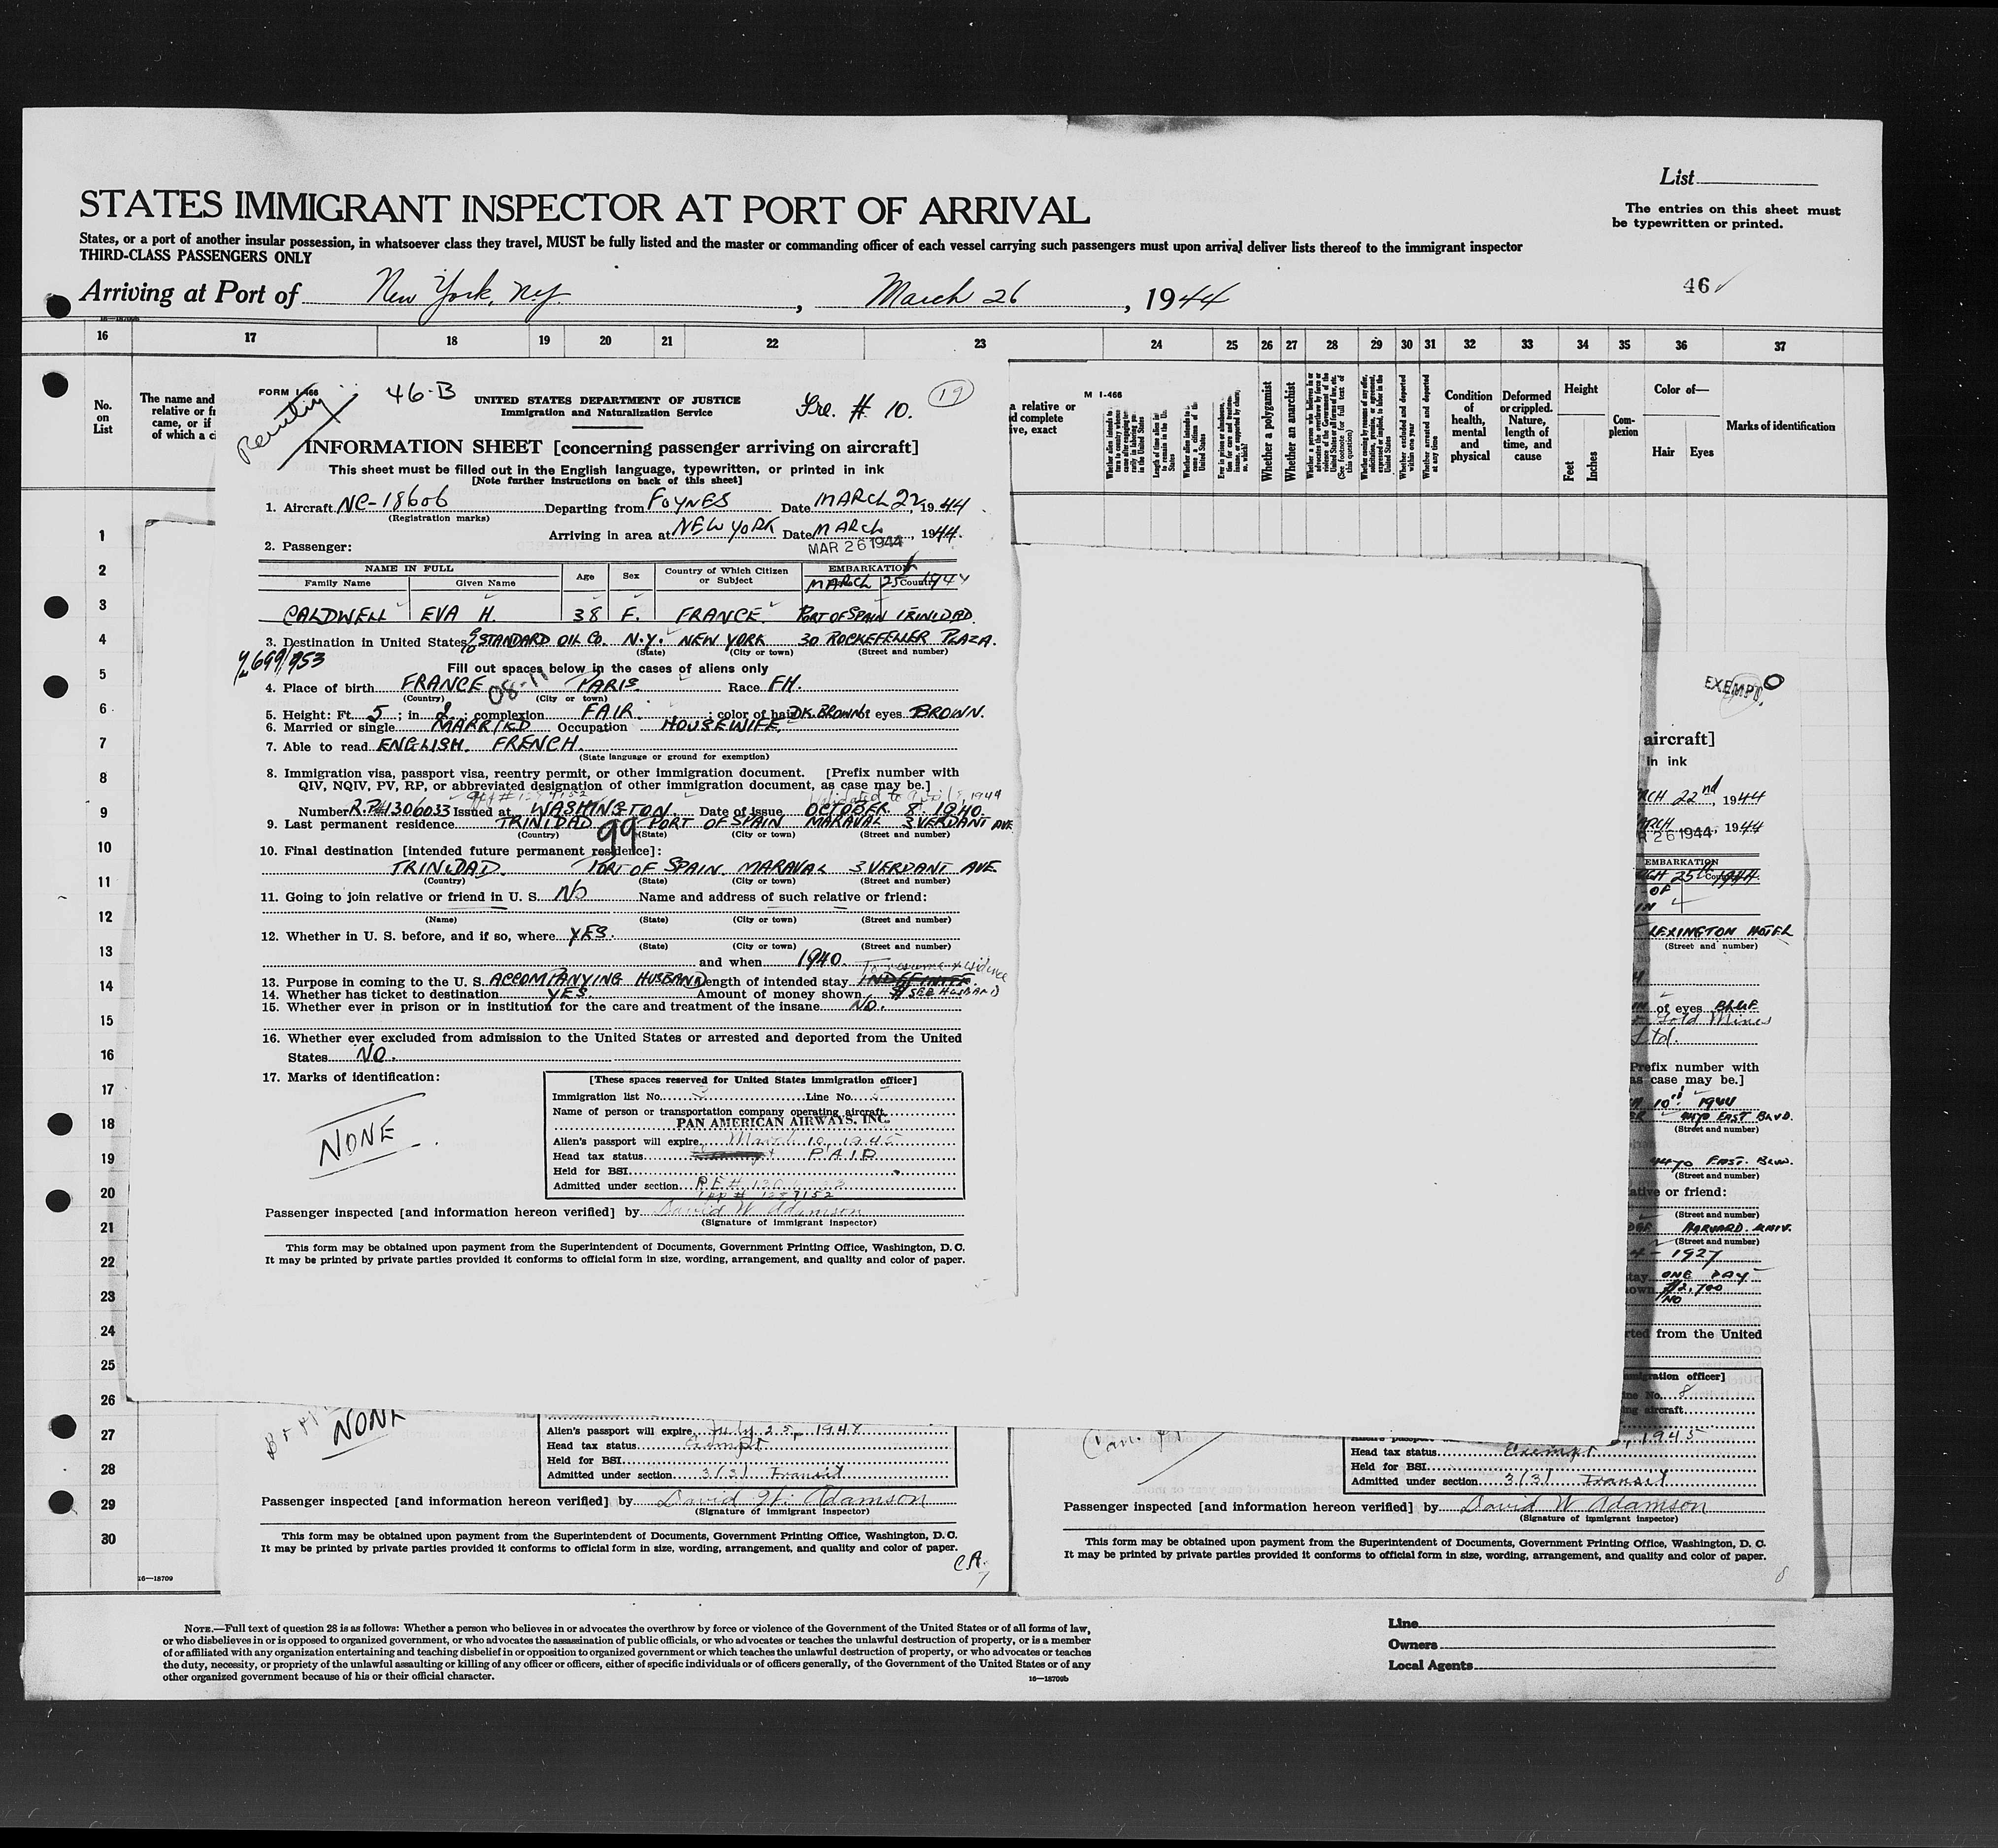 List
The entries on this sheet must
be typewritten or printed.
STATES IMMIGRANT INSPECTOR AT PORT OF ARRIVAL
States, or a port of another insular possession, in whatsoever class they travel, MUST be fully listed and the master or commanding officer of each vessel carrying such passengers must upon arrival deliver lists thereof to the immigrant inspector
THIRD-CLASS PASSENGERS ONLY
Arriving at Port of New York, N.Y. , March 26 , 1944
46
16 17 18 19 20 21 22 23 24 25 26 27 28 29 30 31 32 33 34 35 36 37
No. on List
The name and
relative or fr
came, or if
of which a ci
a relative or
d complete
ive, exact
M I-466
Whether a polygamist
Whether an anarchist
Condition of health, mental and physical
Deformed or crippled. Nature, length of time, and cause
Height
Feet Inches
Complexion
Color of—
Hair Eyes
Marks of identification
FORM I-466
46-B
UNITED STATES DEPARTMENT OF JUSTICE
Immigration and Naturalization Service
# 10.
19
INFORMATION SHEET [concerning passenger arriving on aircraft]
This sheet must be filled out in the English language, typewritten, or printed in ink
[Note further instructions on back of this sheet]
1. Aircraft NC-18606 Departing from FOYNES Date MARCH 22, 1944
(Registration marks)
Arriving in area at NEW YORK Date MARCH, 1944.
MAR 26 1944
2. Passenger:
NAME IN FULL Age Sex Country of Which Citizen or Subject EMBARKATION
Family Name Given Name MARCH 25 1944 Country
CALDWELL EVA H. 38 F. FRANCE PORT OF SPAIN TRINIDAD.
3. Destination in United States c/o STANDARD OIL CO. N.Y. NEW YORK 30 ROCKEFELLER PLAZA.
(State) (City or town) (Street and number)
Fill out spaces below in the cases of aliens only
4. Place of birth FRANCE PARIS. Race FH.
(Country) (City or town)
08-11
5. Height: Ft. 5 ; in 2 ; complexion FAIR. ; color of hair DK BROWN of eyes BROWN.
6. Married or single MARRIED Occupation HOUSEWIFE.
7. Able to read ENGLISH. FRENCH.
(State language or ground for exemption)
8. Immigration visa, passport visa, reentry permit, or other immigration document. [Prefix number with
QIV, NQIV, PV, RP, or abbreviated designation of other immigration document, as case may be.]
Validated to April 8, 1944
Number R.P.#1306033 Issued at WASHINGTON. Date of issue OCTOBER 8 1940.
9. Last permanent residence TRINIDAD PORT OF SPAIN MARAVAL 3 VERDANT AVE
(Country) (State) (City or town) (Street and number)
99
10. Final destination [intended future permanent residence]:
TRINIDAD. PORT OF SPAIN. MARAVAL 3 VERDANT AVE.
(Country) (State) (City or town) (Street and number)
11. Going to join relative or friend in U. S. NO Name and address of such relative or friend:
(Name) (State) (City or town) (Street and number)
12. Whether in U. S. before, and if so, where YES.
(State) (City or town) (Street and number)
and when 1940.
To resume residence
13. Purpose in coming to the U. S. ACCOMPANYING HUSBAND Length of intended stay
14. Whether has ticket to destination YES. Amount of money shown $ SEE HUSBAND
15. Whether ever in prison or in institution for the care and treatment of the insane NO.
16. Whether ever excluded from admission to the United States or arrested and deported from the United
States NO.
17. Marks of identification:
NONE
[These spaces reserved for United States immigration officer]
Immigration list No. 3 Line No.
Name of person or transportation company operating aircraft
PAN AMERICAN AIRWAYS, INC.
Alien's passport will expire March 10, 1945
Head tax status PAID
Held for BSI
Admitted under section
Passenger inspected [and information hereon verified] by David W Adamson
(Signature of immigrant inspector)
This form may be obtained upon payment from the Superintendent of Documents, Government Printing Office, Washington, D. C.
It may be printed by private parties provided it conforms to official form in size, wording, arrangement, and quality and color of paper.
1
2
3
4
5
6
7
8
9
10
11
12
13
14
15
16
17
18
19
20
21
22
23
24
25
26
27
28
29
30
EXEMPT
aircraft]
in ink
RCH 22nd, 1944
ARCH, 1944
R 26 1944
EMBARKATION
LEXINGTON HOTEL
(Street and number)
of eyes BLUE
Gold Mines
Ltd.
Prefix number with
as case may be.]
1944
4470 EAST BLVD.
(Street and number)
4470 EAST. BLVD.
(Street and number)
ative or friend:
(Street and number)
HARVARD. UNIV.
(Street and number)
1927
stay ONE DAY
NO
rted from the United
migration officer]
ine No. 8
ng aircraft
NONE
Alien's passport will expire July 25, 194
Head tax status Exempt
Held for BSI
Admitted under section 3(3) Transit
Passenger inspected [and information hereon verified] by David W. Adamson
(Signature of immigrant inspector)
This form may be obtained upon payment from the Superintendent of Documents, Government Printing Office, Washington, D. C.
It may be printed by private parties provided it conforms to official form in size, wording, arrangement, and quality and color of paper.
, 1945
Head tax status Exempt
Held for BSI
Admitted under section 3(3) Transit
Passenger inspected [and information hereon verified] by David W Adamson
(Signature of immigrant inspector)
This form may be obtained upon payment from the Superintendent of Documents, Government Printing Office, Washington, D. C.
It may be printed by private parties provided it conforms to official form in size, wording, arrangement, and quality and color of paper.
8
16—18709
NOTE.—Full text of question 28 is as follows: Whether a person who believes in or advocates the overthrow by force or violence of the Government of the United States or of all forms of law,
or who disbelieves in or is opposed to organized government, or who advocates the assassination of public officials, or who advocates or teaches the unlawful destruction of property, or is a member
of or affiliated with any organization entertaining and teaching disbelief in or opposition to organized government or which teaches the unlawful destruction of property, or who advocates or teaches
the duty, necessity, or propriety of the unlawful assaulting or killing of any officer or officers, either of specific individuals or of officers generally, of the Government of the United States or of any
other organized government because of his or their official character.
16—18709b
Line
Owners
Local Agents